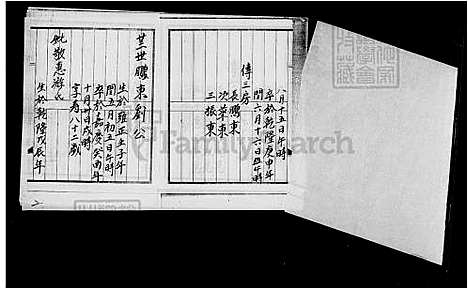 八月十五日午時
卒於乾隆庚申年
閏六月十六日丑時
傳三房
長鵬東
次業東
三振東
廿世鵬東劉公
生於雍正壬子年
閏五月初五日午時
卒於嘉慶癸酉年
十月廿日戌時
享壽八十二歲
妣敬惠游氏
生於乾隆戊辰年
FamilySearch